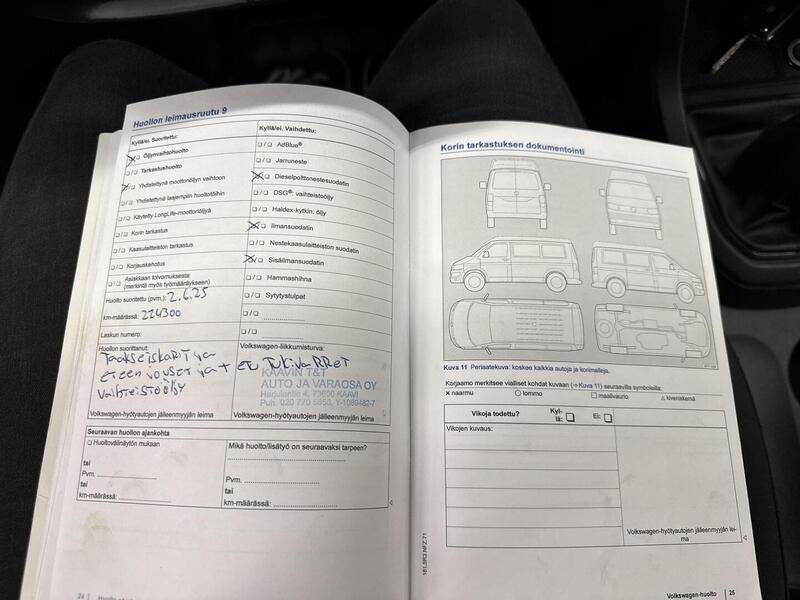 Huollon leimausruutu 9
Kyllä/ei. Suoritettu:
Kyllä/ei. Vaihdettu:
Öljynvaihtohuolto
❑/❑ AdBlue®
❑/❑ Tarkastushuolto
❑/❑ Jarruneste
❑ Yhdistettynä moottoriöljyn vaihtoon
❑ Dieselpolttonestesuodatin
❑/❑ Yhdistettynä laajempiin huoltotöihin
❑/❑ DSG®: vaihteistoöljy
❑/❑ Käytetty LongLife-moottoriöljyä
❑/❑ Haldex-kytkin: öljy
❑/❑ Korin tarkastus
❑ Ilmansuodatin
❑/❑ Kaasulaitteiston tarkastus
❑/❑ Nestekaasulaitteiston suodatin
❑/❑ Korjauskehotus
❑ Sisäilmansuodatin
❑/❑ Asiakkaan toivomuksesta
(merkintä myös työmääräykseen)
❑/❑ Hammashihna
Huolto suoritettu (pvm.): 2.6.25
❑/❑ Sytytystulpat
km-määrässä: 224300
❑/❑
Laskun numero:
❑/❑
Huollon suorittanut:
Volkswagen-liikkumisturva:
Taakseiskarit ja
eteen jouset ja + etu Tukivarret
vaihteistoöljy
KAAVIN T&T
AUTO JA VARAOSA OY
Harjulantie 4, 73600 KAAVI
Puh: 020 770 5650, Y-1089482-7
Volkswagen-hyötyautojen jälleenmyyjän leima
Volkswagen-hyötyautojen jälleenmyyjän leima
Seuraavan huollon ajankohta
❑ Huoltovälinäytön mukaan
Mikä huolto/lisätyö on seuraavaksi tarpeen?
tai
Pvm.
Pvm.
tai
tai
km-määrässä:
km-määrässä:
24
Korin tarkastuksen dokumentointi
Kuva 11 Periaatekuva: koskee kaikkia autoja ja korimalleja.
Korjaamo merkitsee vialliset kohdat kuvaan (⇒ Kuva 11) seuraavilla symboleilla:
× naarmu ○ lommo □ maalivaurio △ kiveniskemä
Vikoja todettu? Kyl-lä: ❑ Ei: ❑
Vikojen kuvaus:
Volkswagen-hyötyautojen jälleenmyyjän lei-
ma
161.5R3.NFZ.71
Volkswagen-huolto 25